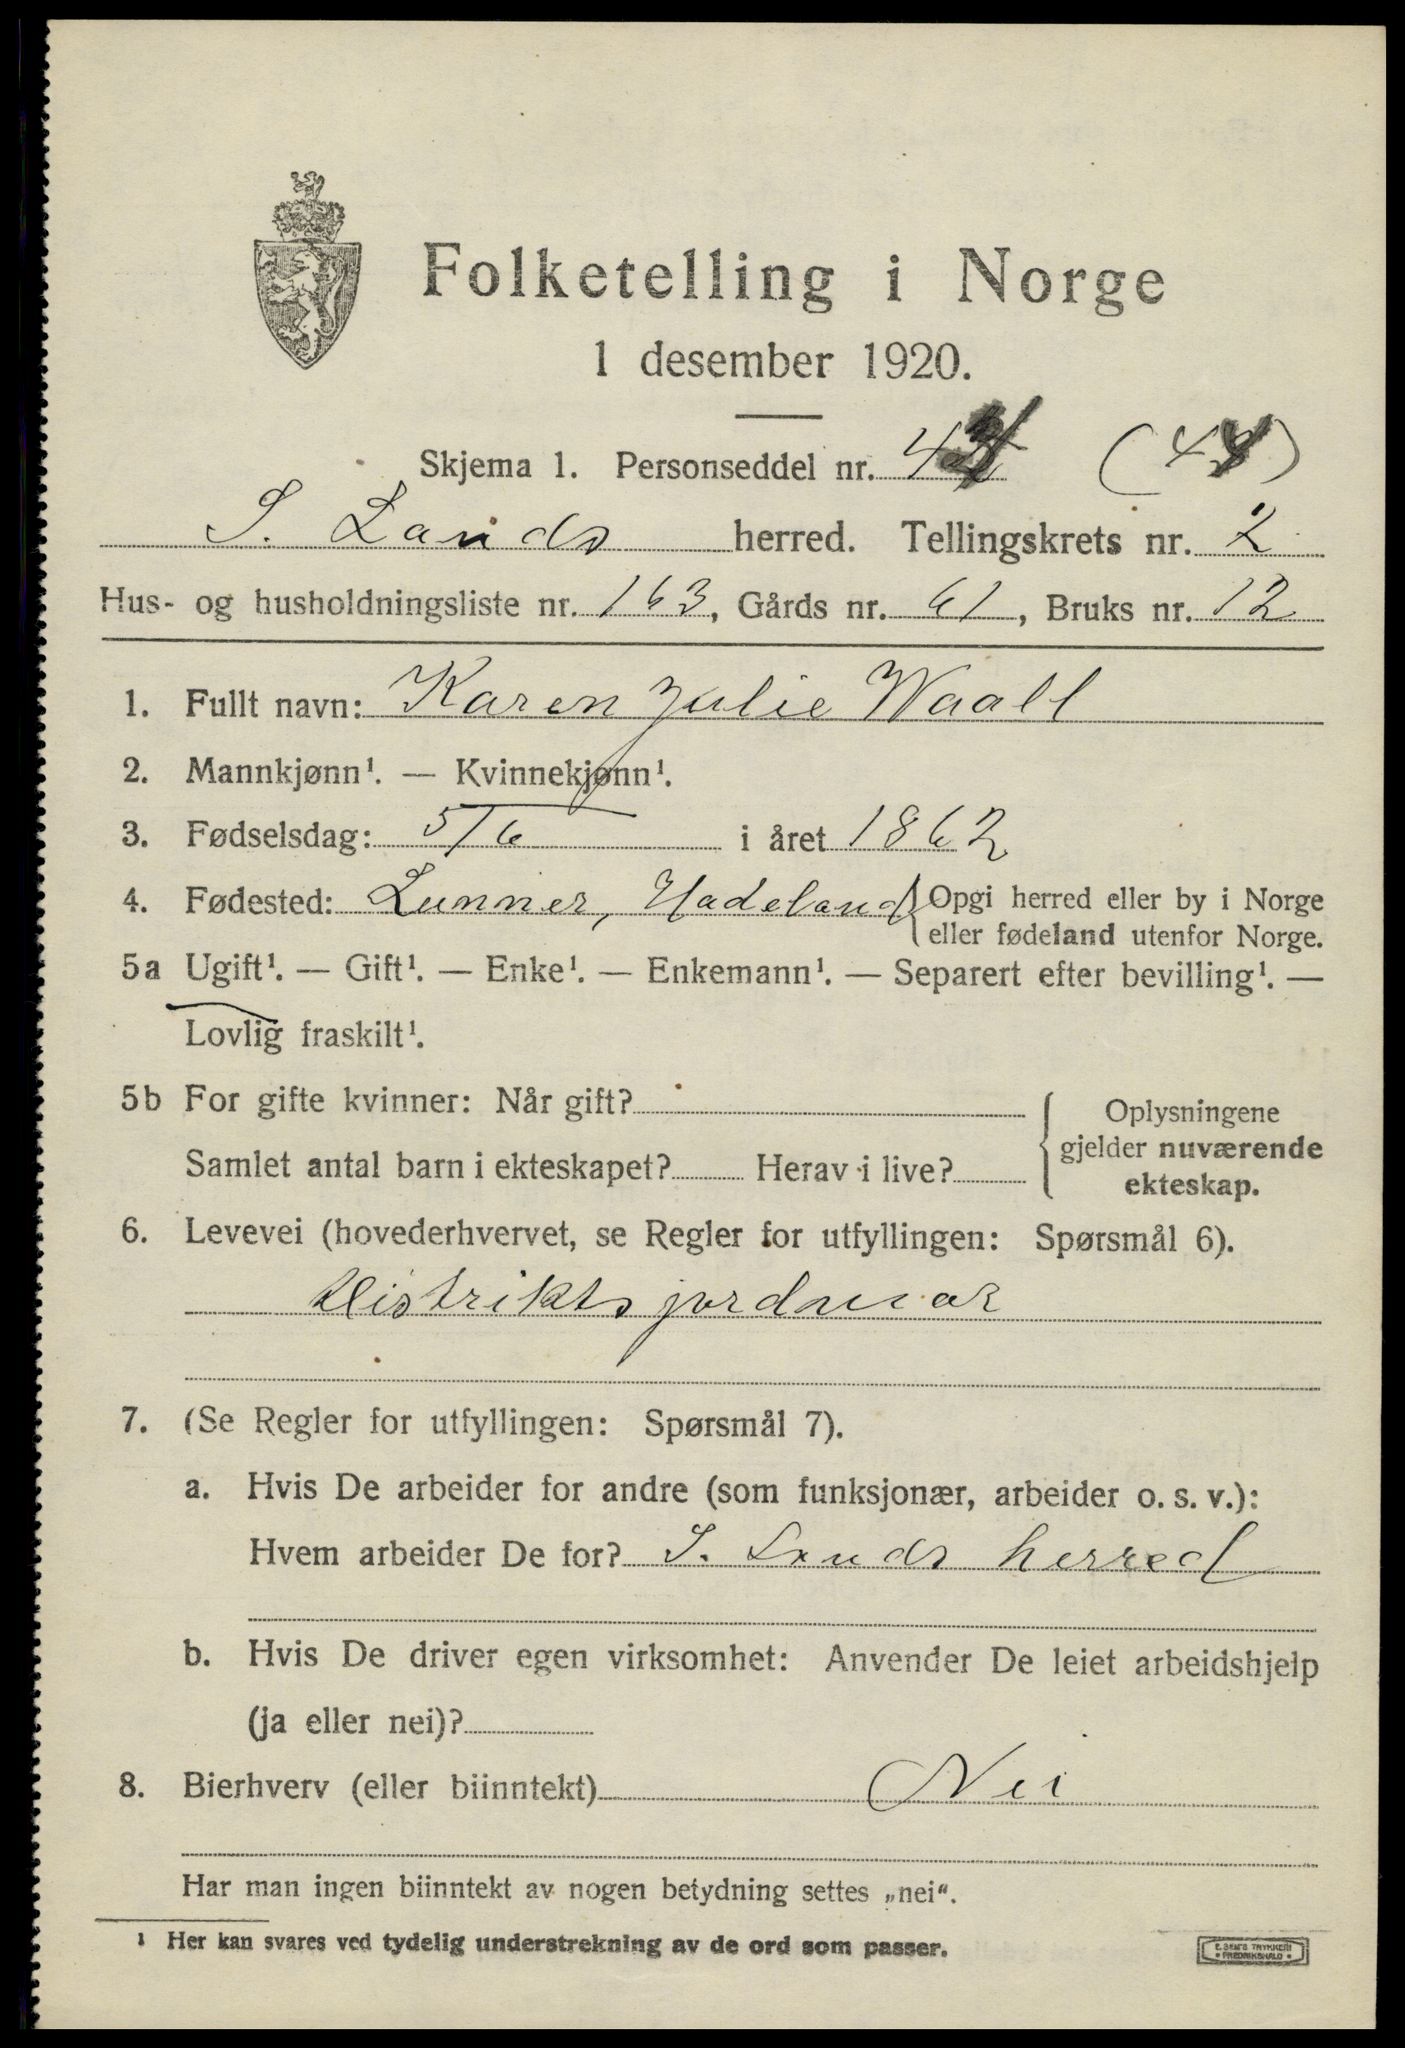 Folketelling i Norge
1 desember 1920.
Skjema 1. Personseddel nr. 4
S. Lands herred. Tellingskrets nr. 2
Hus- og husholdningsliste nr. 163, Gårds nr. 61, Bruks nr. 12
1. Fullt navn: Karen Julie Waall
2. Mannkjønn¹. — Kvinnekjønn¹.
3. Fødselsdag: 5/6 i året 1862
4. Fødested: Lunner, Hadeland { Opgi herred eller by i Norge
eller fødeland utenfor Norge.
5a Ugift¹. — Gift¹. — Enke¹. — Enkemann¹. — Separert efter bevilling¹. —
Lovlig fraskilt¹.
5b For gifte kvinner: Når gift?
Samlet antal barn i ekteskapet? Herav i live?
{ Oplysningene
gjelder nuværende
ekteskap.
6. Levevei (hovederhvervet, se Regler for utfyllingen: Spørsmål 6).
Distriktsjordmor
7. (Se Regler for utfyllingen: Spørsmål 7).
a. Hvis De arbeider for andre (som funksjonær, arbeider o. s. v.):
Hvem arbeider De for? S. Lands herred
b. Hvis De driver egen virksomhet: Anvender De leiet arbeidshjelp
(ja eller nei)?
8. Bierhverv (eller biinntekt) Nei
Har man ingen biinntekt av nogen betydning settes „nei“.
¹ Her kan svares ved tydelig understrekning av de ord som passer.
E. SEM'S TRYKKERI
• FREDRIKSHALD •